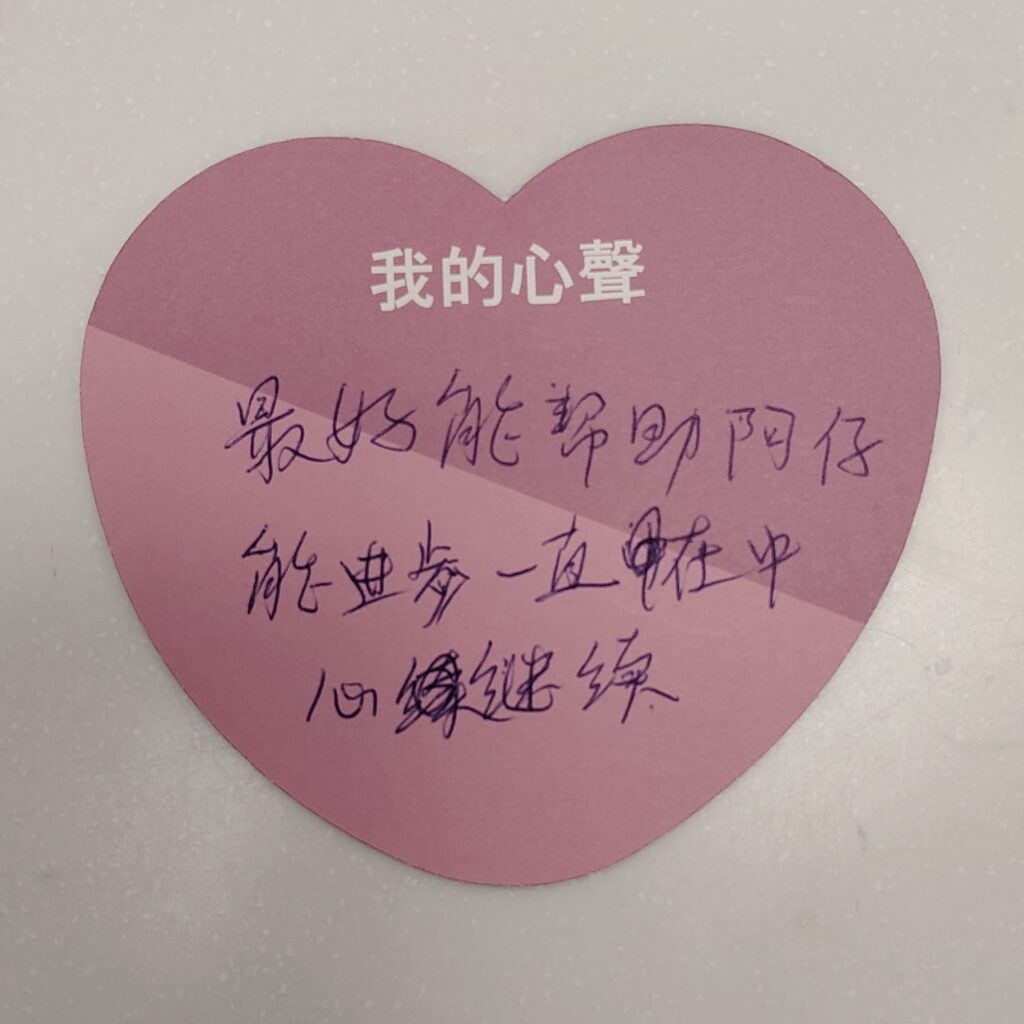 我的心聲
最好能帮助阿仔
能进步一直在中
心继续